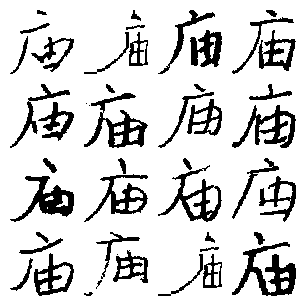 庙庙庙庙
庙庙庙庙
庙庙庙庙
庙庙庙庙